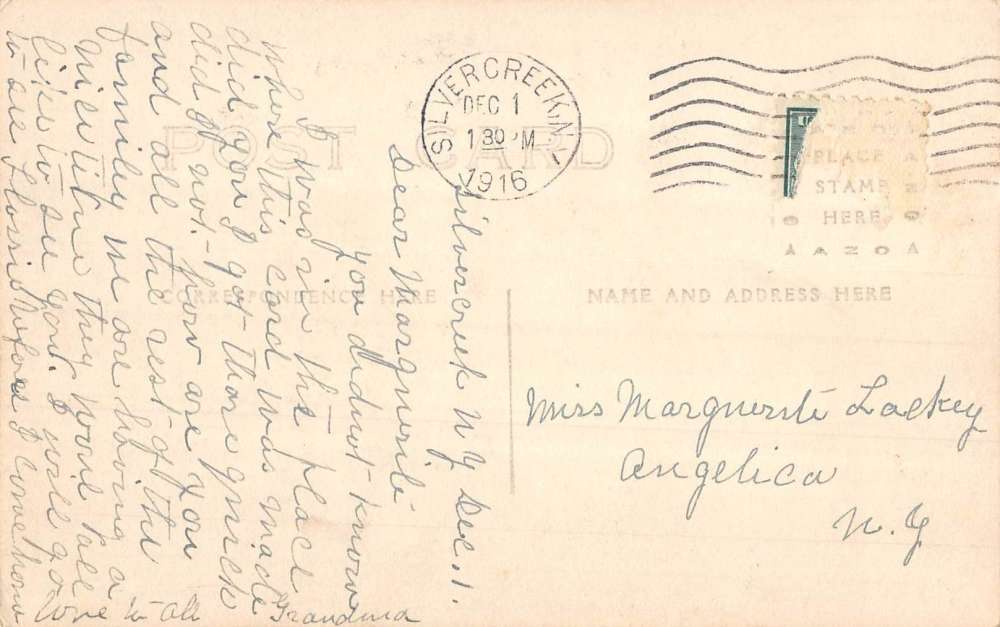 POST CARD
SILVER CREEK, N.Y.
DEC 1
1 30 PM
1916
PLACE
STAMP
HERE
AZO
CORRESPONDENCE HERE
NAME AND ADDRESS HERE
Silvercreek N Y Dec. 1.
Dear Marguerite
you didnot know
I was in the place
where this card was made
did you I got there quick
did I not. how are you
and all the rest of the
family we are having a
nice time they would all
like to see you. I will go
to see Flossie before I come home
love to all Grandma
Miss Marguerite Lackey
Angelica
N. Y